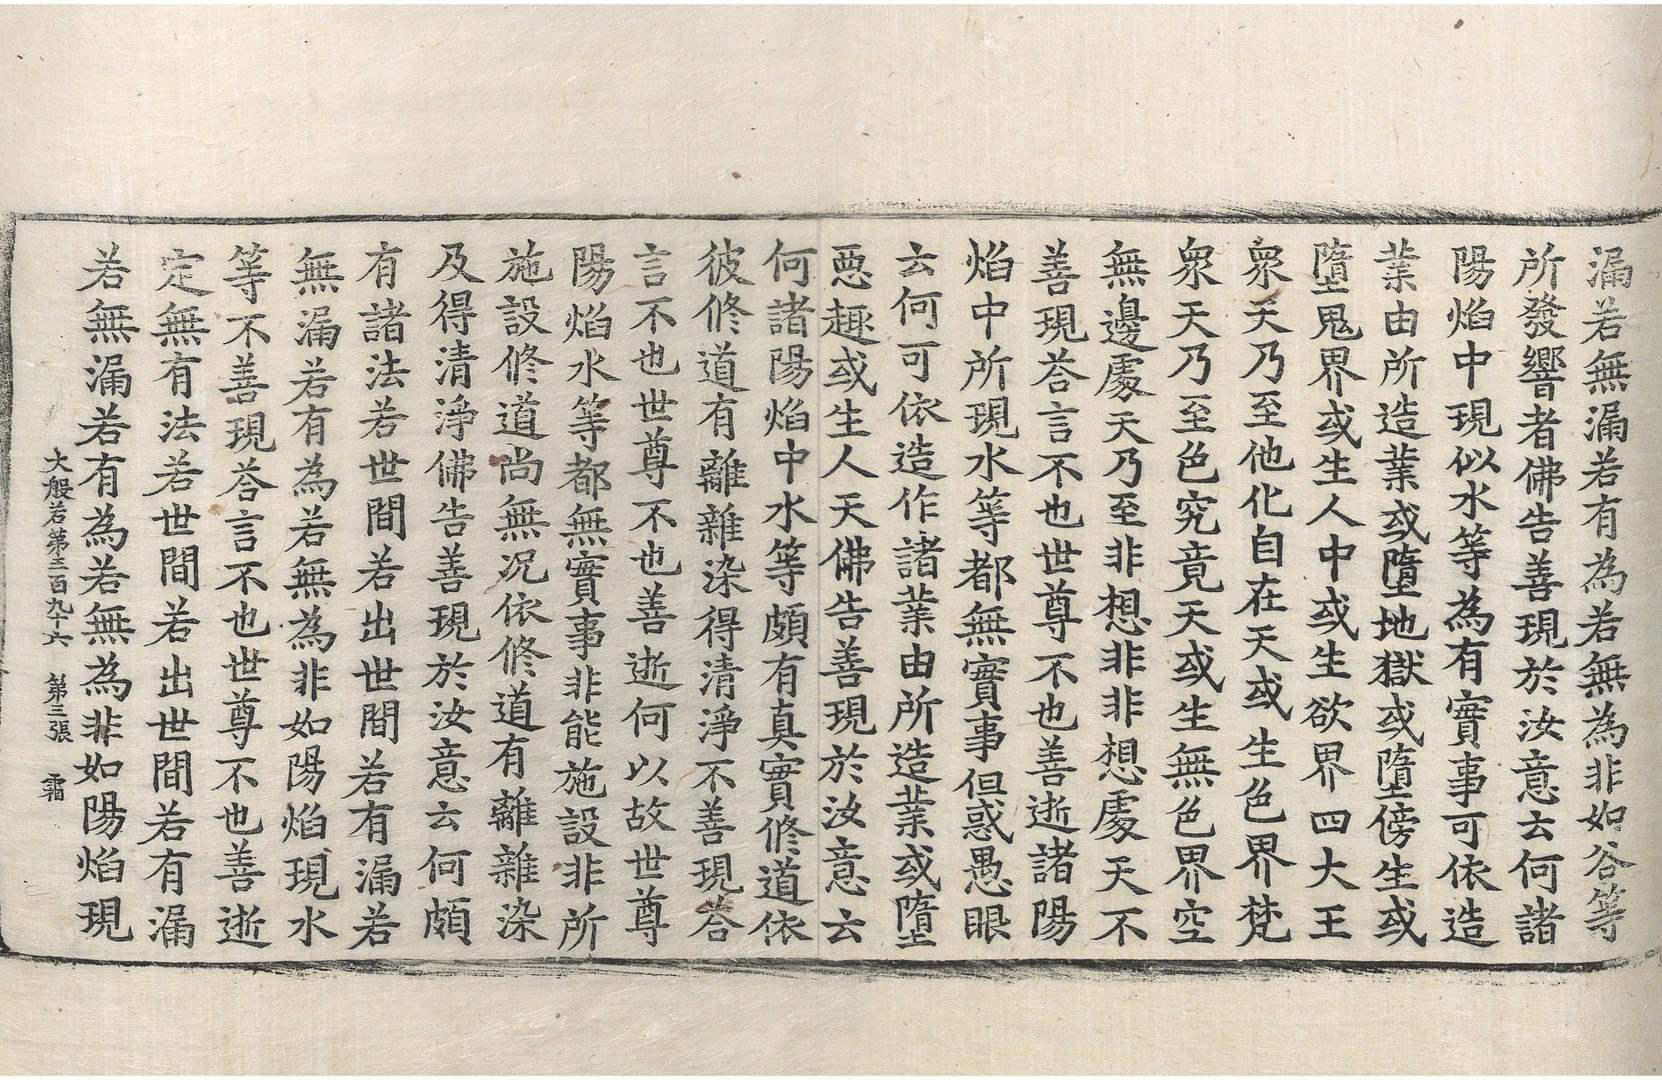 漏若無漏若有為若無為非如谷等
所發響者佛告善現於汝意云何諸
陽焰中現似水等為有實事可依造
業由所造業或墮地獄或墮傍生或
墮鬼界或生人中或生欲界四大王
衆天乃至他化自在天或生色界梵
衆天乃至色究竟天或生無色界空
無邊處天乃至非想非非想處天不
善現荅言不也世尊不也善逝諸陽
焰中所現水等都無實事但惑愚眼
云何可依造作諸業由所造業或墮
惡趣或生人天佛告善現於汝意云
何諸陽焰中水等頗有真實修道依
彼修道有離雜染得清淨不善現荅
言不也世尊不也善逝何以故世尊
陽焰水等都無實事非能施設非所
施設修道尚無況依修道有離雜染
及得清淨佛告善現於汝意云何頗
有諸法若世間若出世間若有漏若
無漏若有為若無為非如陽焰現水
等不善現荅言不也世尊不也善逝
定無有法若世間若出世間若有漏
若無漏若有為若無為非如陽焰現
大般若第三百九十六 第三張 霜